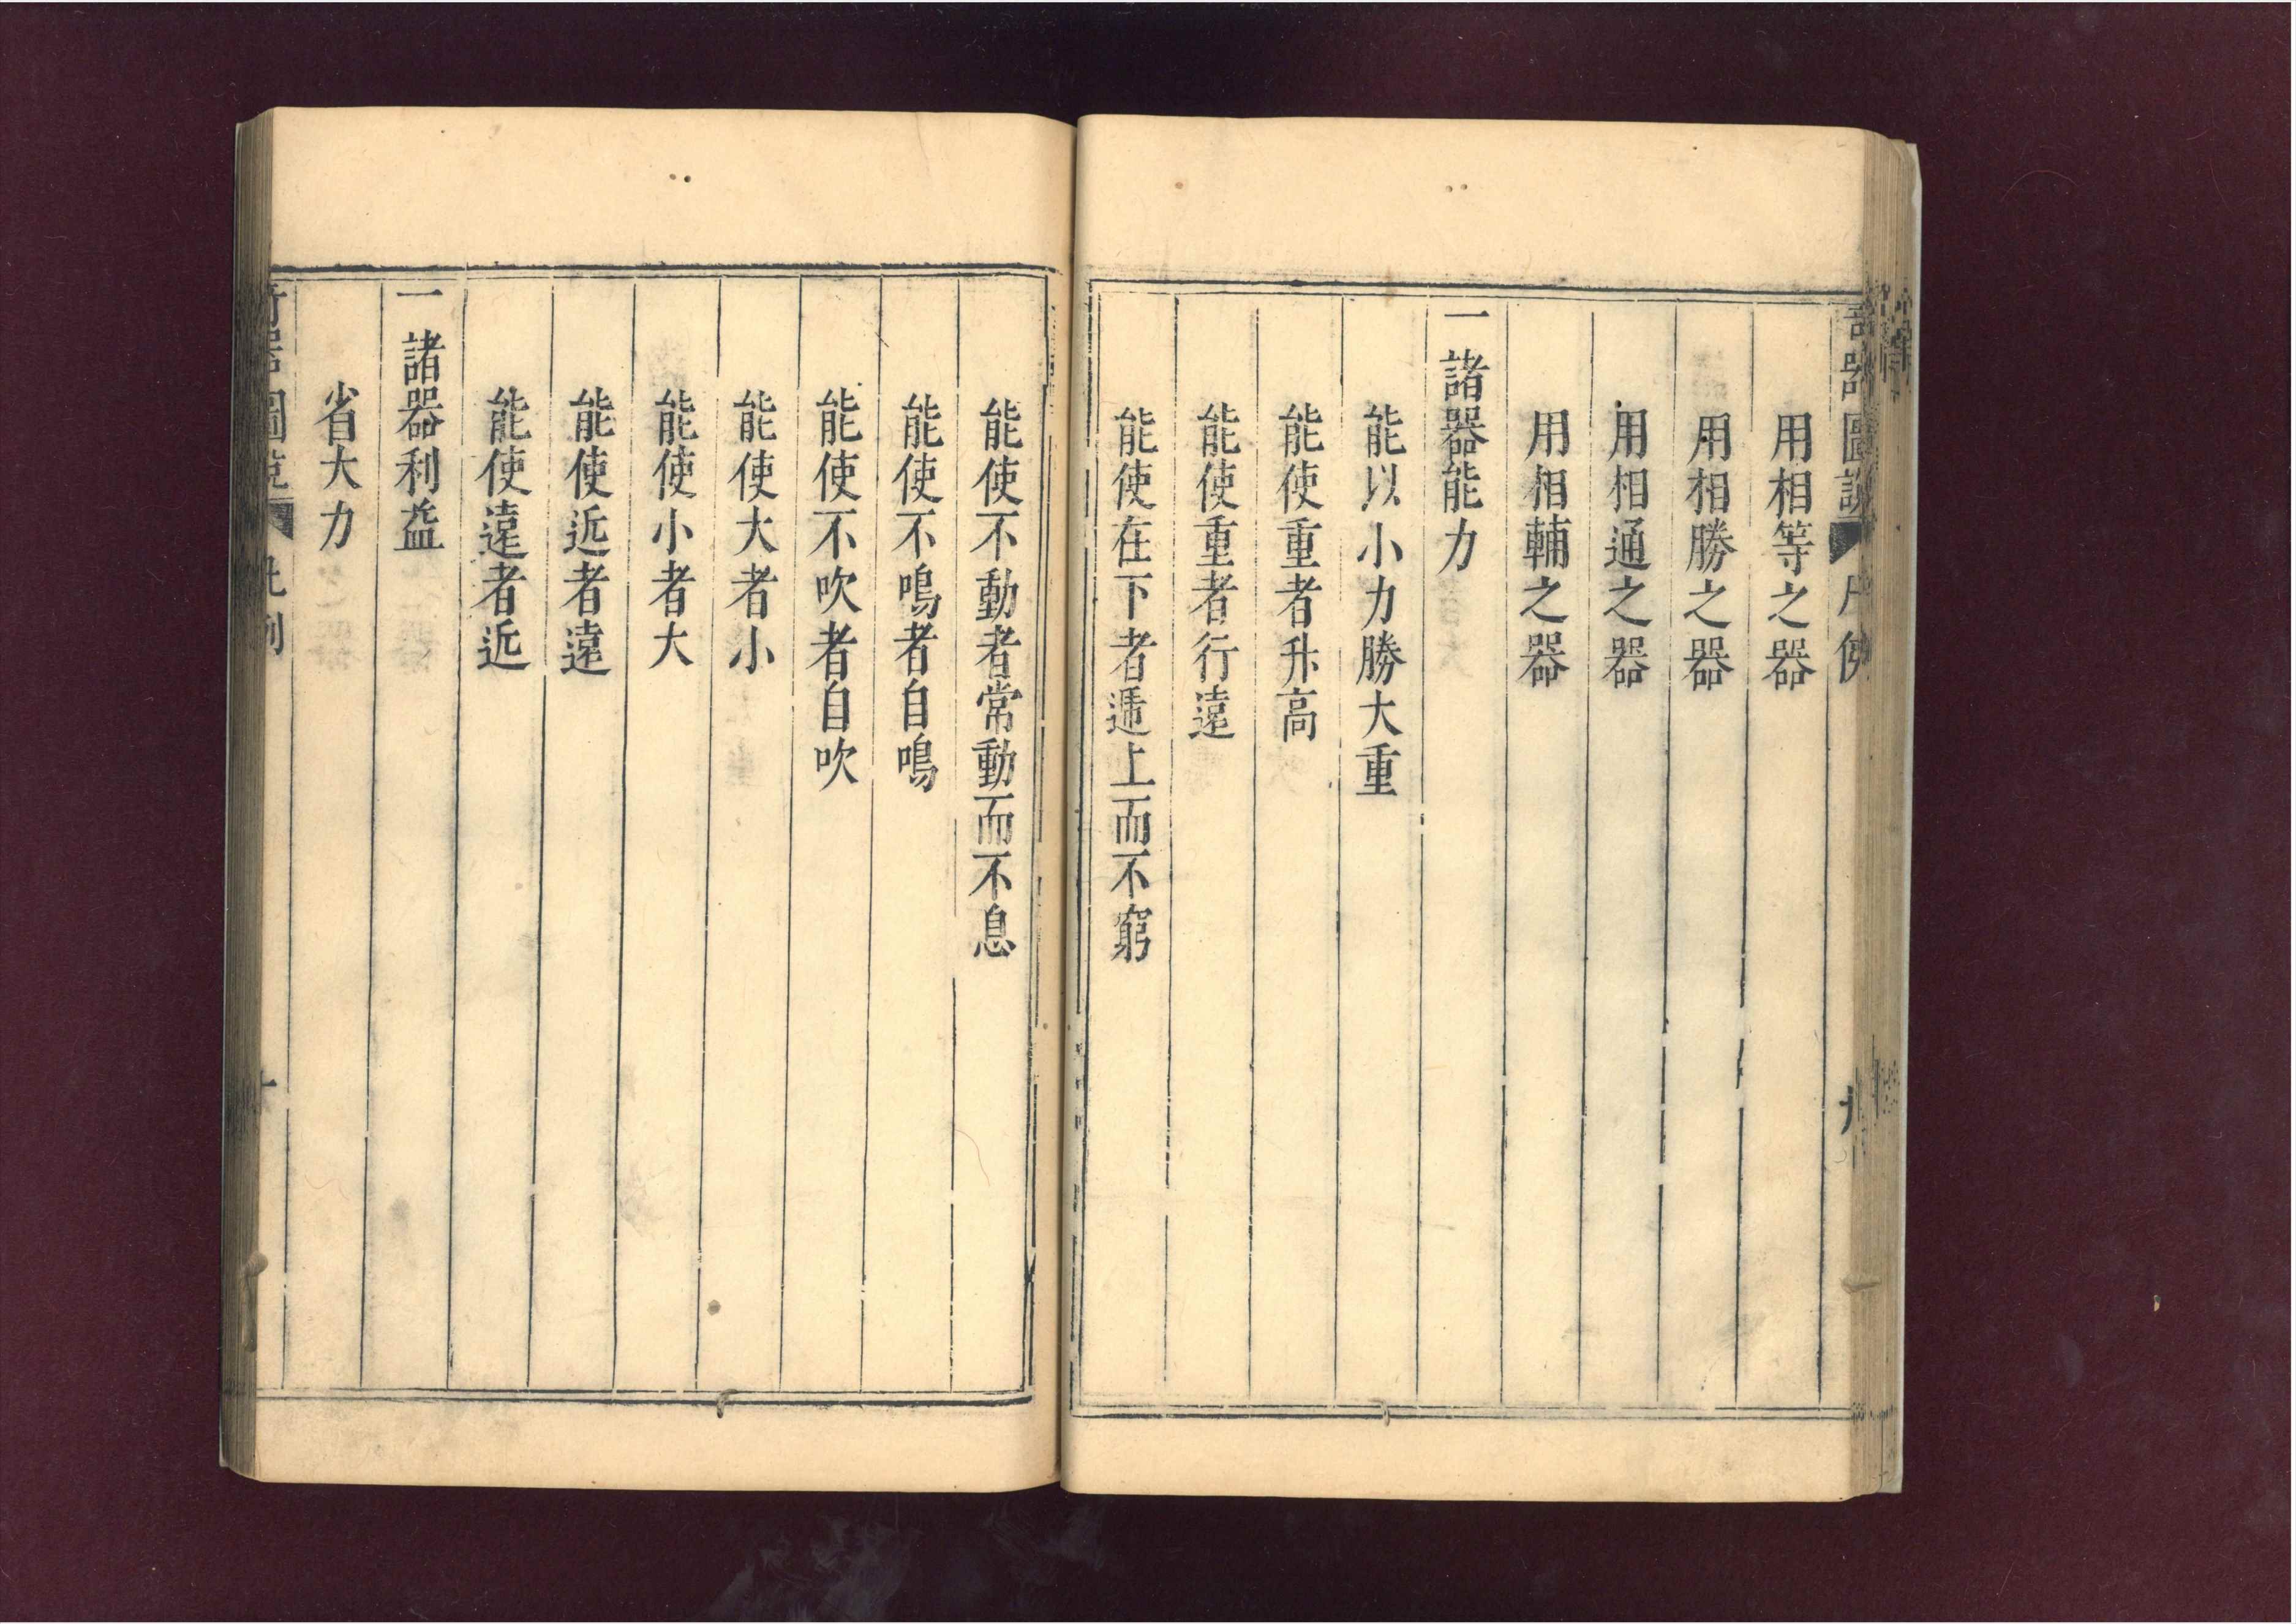 用相等之器
用相勝之器
用相通之器
用相輔之器
一諸器能力
能以小力勝大重
能使重者升高
能使重者行遠
能使在下者遞上而不窮
能使不動者常動而不息
能使不鳴者自鳴
能使不吹者自吹
能使大者小
能使小者大
能使近者遠
能使遠者近
一諸器利益
省大力